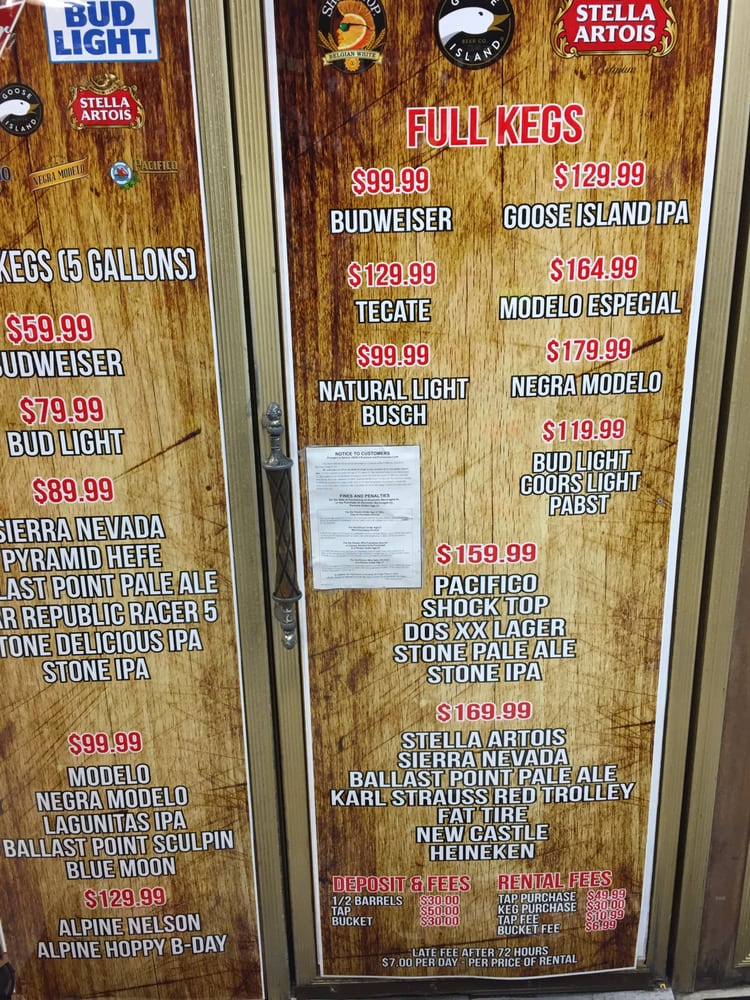 BUD
LIGHT.
GOOSE
ISLAND
STELLA
ARTOIS
NEGRA MODELO
PACIFICO
KEGS (5 GALLONS)
$59.99
UDWEISER
$79.99
BUD LIGHT
$89.99
SIERRA NEVADA
PYRAMID HEFE
LAST POINT PALE ALE
R REPUBLIC RACER 5
TONE DELICIOUS IPA
STONE IPA
$99.99
MODELO
NEGRA MODELO
LAGUNITAS IPA
BALLAST POINT SCULPIN
BLUE MOON
$129.99
ALPINE NELSON
ALPINE HOPPY B-DAY
BELGIAN WHITE
BEER CO.
ISLAND
STELLA
ARTOIS
FULL KEGS
$99.99
BUDWEISER
$129.99
GOOSE ISLAND IPA
$129.99
TECATE
$164.99
MODELO ESPECIAL
$99.99
NATURAL LIGHT
BUSCH
$179.99
NEGRA MODELO
$119.99
BUD LIGHT
COORS LIGHT
PABST
NOTICE TO CUSTOMERS
FINES AND PENALTIES
$159.99
PACIFICO
SHOCK TOP
DOS XX LAGER
STONE PALE ALE
STONE IPA
$169.99
STELLA ARTOIS
SIERRA NEVADA
BALLAST POINT PALE ALE
KARL STRAUSS RED TROLLEY
FAT TIRE
NEW CASTLE
HEINEKEN
DEPOSIT & FEES
1/2 BARRELS $30.00
TAP $50.00
BUCKET $30.00
RENTAL FEES
TAP PURCHASE $49.99
KEG PURCHASE $30.00
TAP FEE $10.99
BUCKET FEE $6.99
LATE FEE AFTER 72 HOURS
$7.00 PER DAY - PER PRICE OF RENTAL